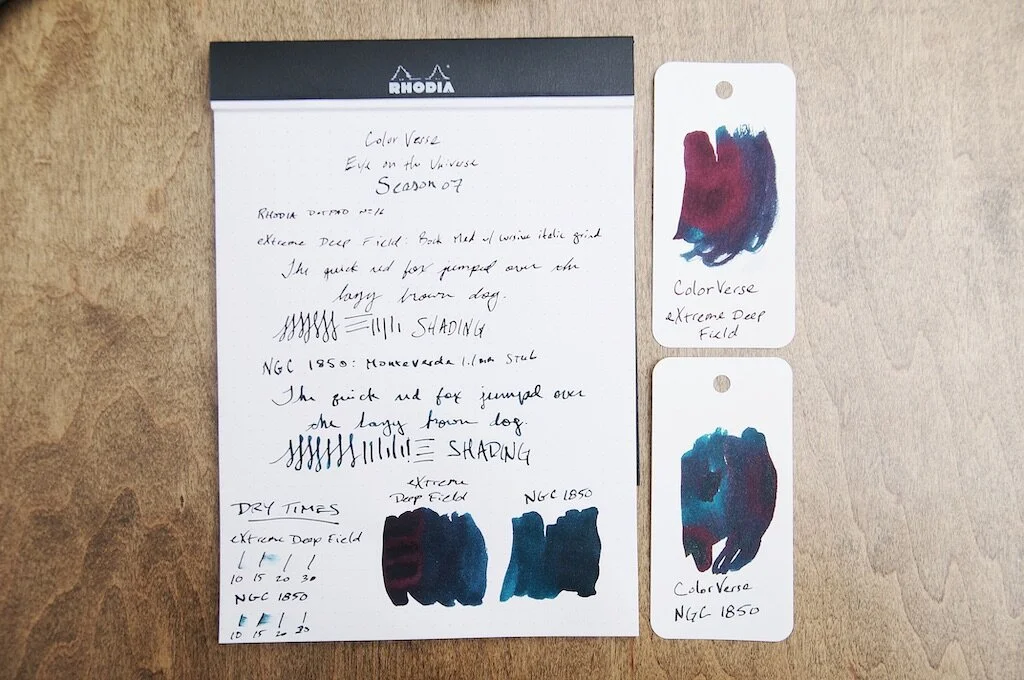 RHODIA
Color Verse
Eye on the Universe
Season 07
RHODIA DOTPAD Nº16
eXtreme Deep Field: Bock Med w/ cursive italic grind
The quick red fox jumped over the
lazy brown dog.
SHADING
NGC 1850: Monteverde 1.1mm Stub
The quick red fox jumped over
the lazy brown dog.
SHADING
eXtreme
Deep Field
NGC 1850
DRY TIMES
eXtreme Deep Field
10 15 20 30
NGC 1850
10 15 20 30
ColorVerse
eXtreme Deep
Field
ColorVerse
NGC 1850